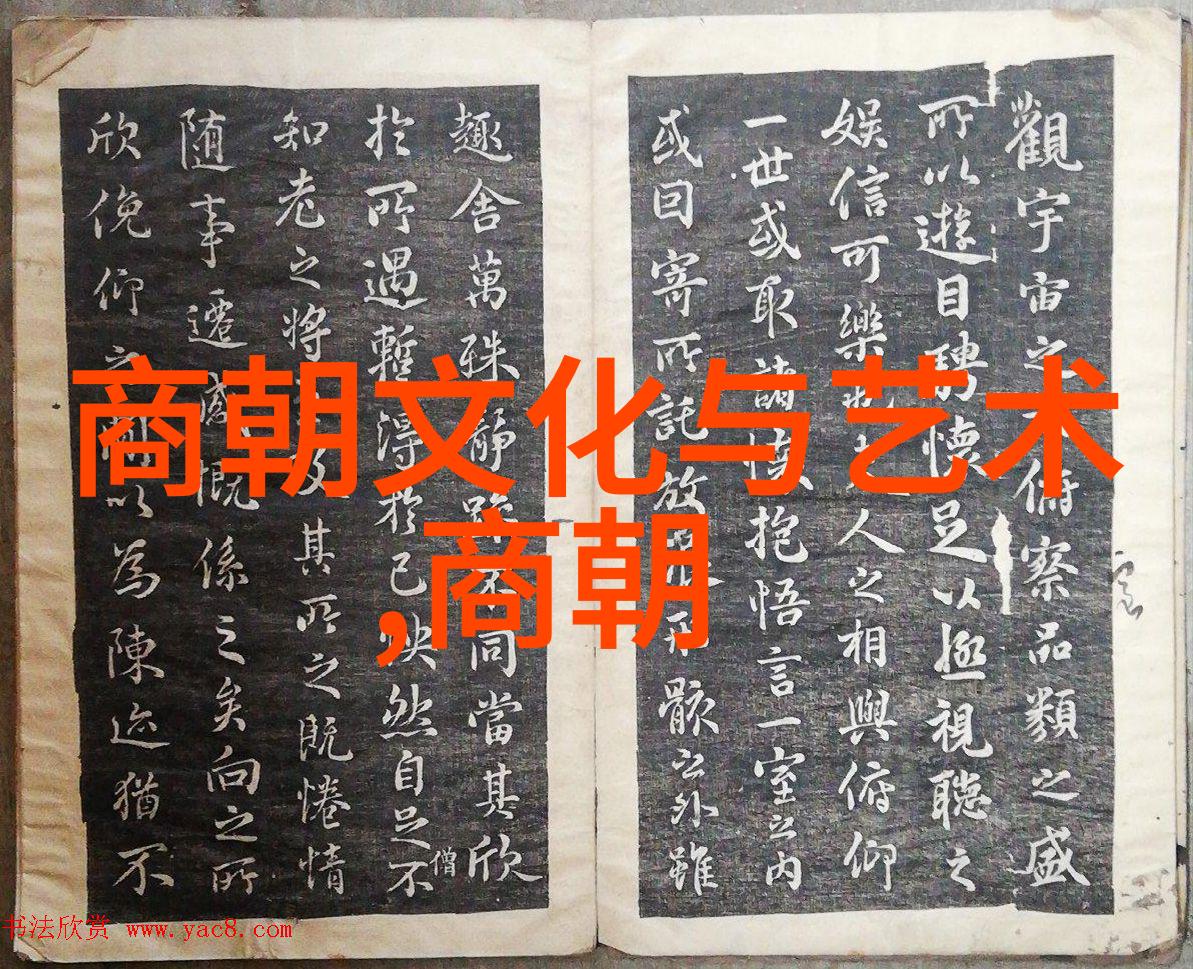 商朝文化与艺术
,商朝
觀宇宙之俯察品類之盛
所以遊目騁懷足以極視聽之
娱信可樂人之相與俯仰
一世或取諸懷抱悟言一室之内
或因寄所託放形骸之外雖
趣舍萬殊靜躁不同當其欣
僧
於所遇暫得於己快然自足不
知老之將及其所之既惓情
随事遷感慨係之矣向之所
欣俛仰之間以為陳迹猶不
书法欣赏 www.yac8.com